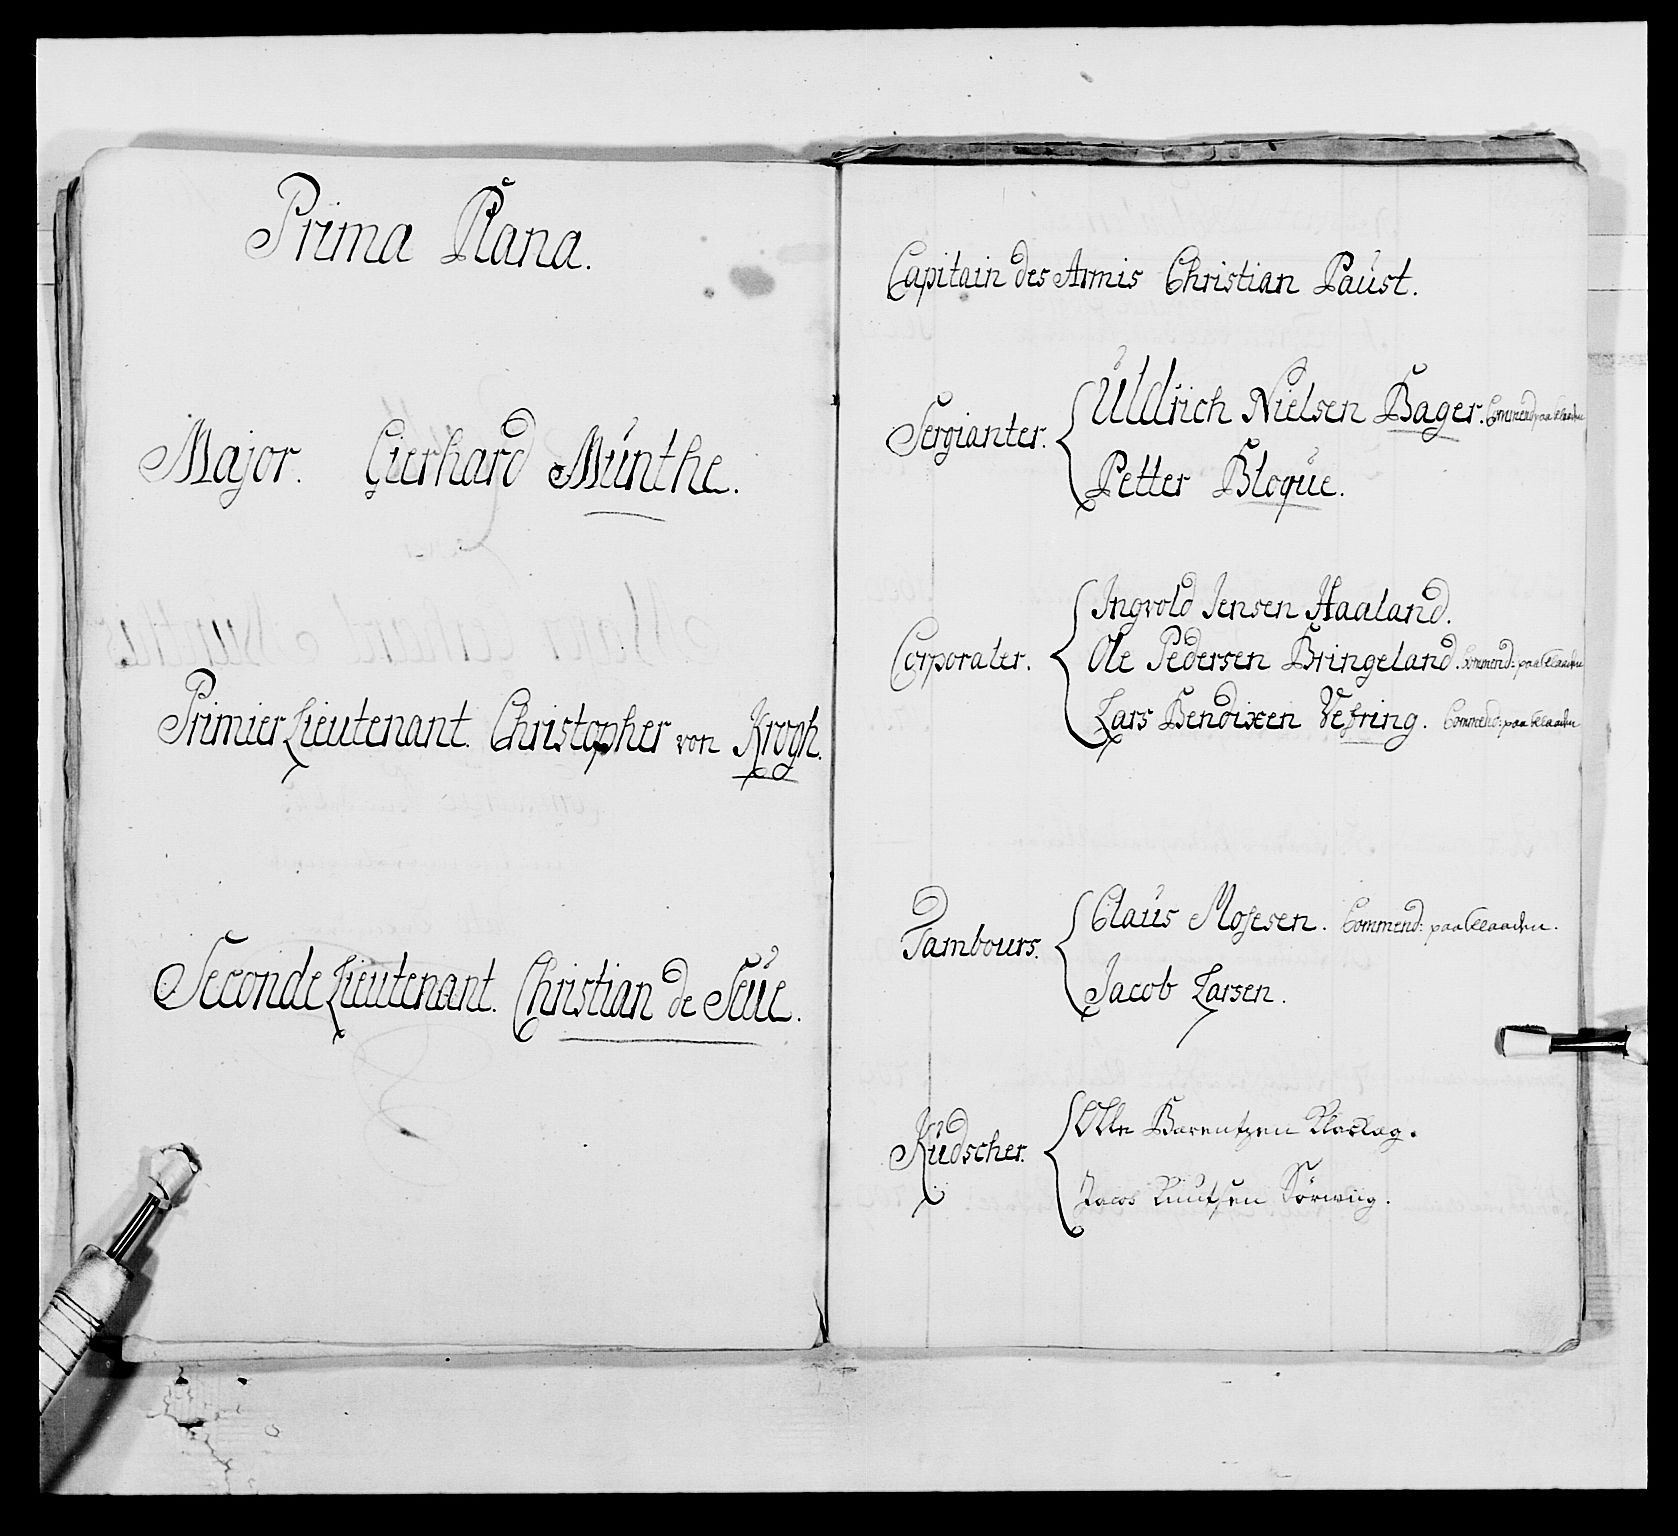 Prima Plana.
Major. Gierhard Münthe.
Primier Lieutenant. Christopher von Krogh.
Seconde Lieutenant. Christian de Seüe.
Capitain des Armis Christian Paüst.
Sergianter.
Üldrich Nielsen Bager. Commend: paa Klaaden
Petter Bloqüe.
Corporaler.
Ingvold Jensen Haaland.
Ole Pedersen Bringeland. Commend: paa Klaaden
Lars Bendixen Vefring. Commend: paa Klaaden
Tambours.
Claüs Mosesen. Commend: paa Klaaden.
Jacob Larsen.
Küdscher.
Olle Barentzen
Jacob Knutsen Sörwiig.